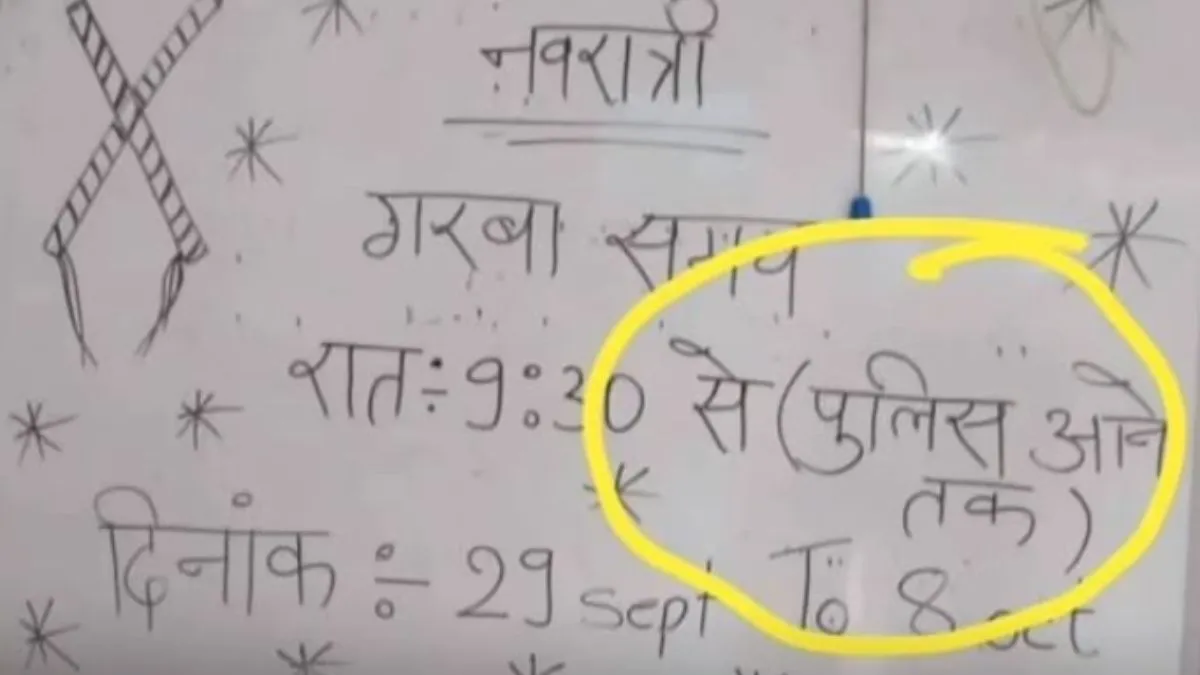 नवरात्री
गरबा समय
रात÷9:30 से (पुलिस आने
तक)
दिनांक ÷ 29 sept To 8 oct